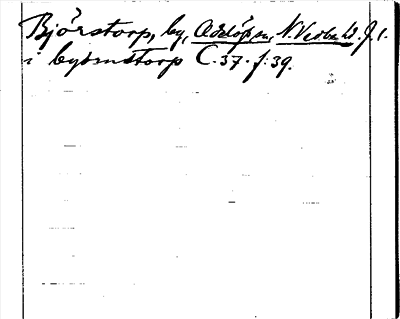 Björstorp, by, Odslösa, N. Vedbo hd. J. l.
i byornstorp C. 37. f: 39.